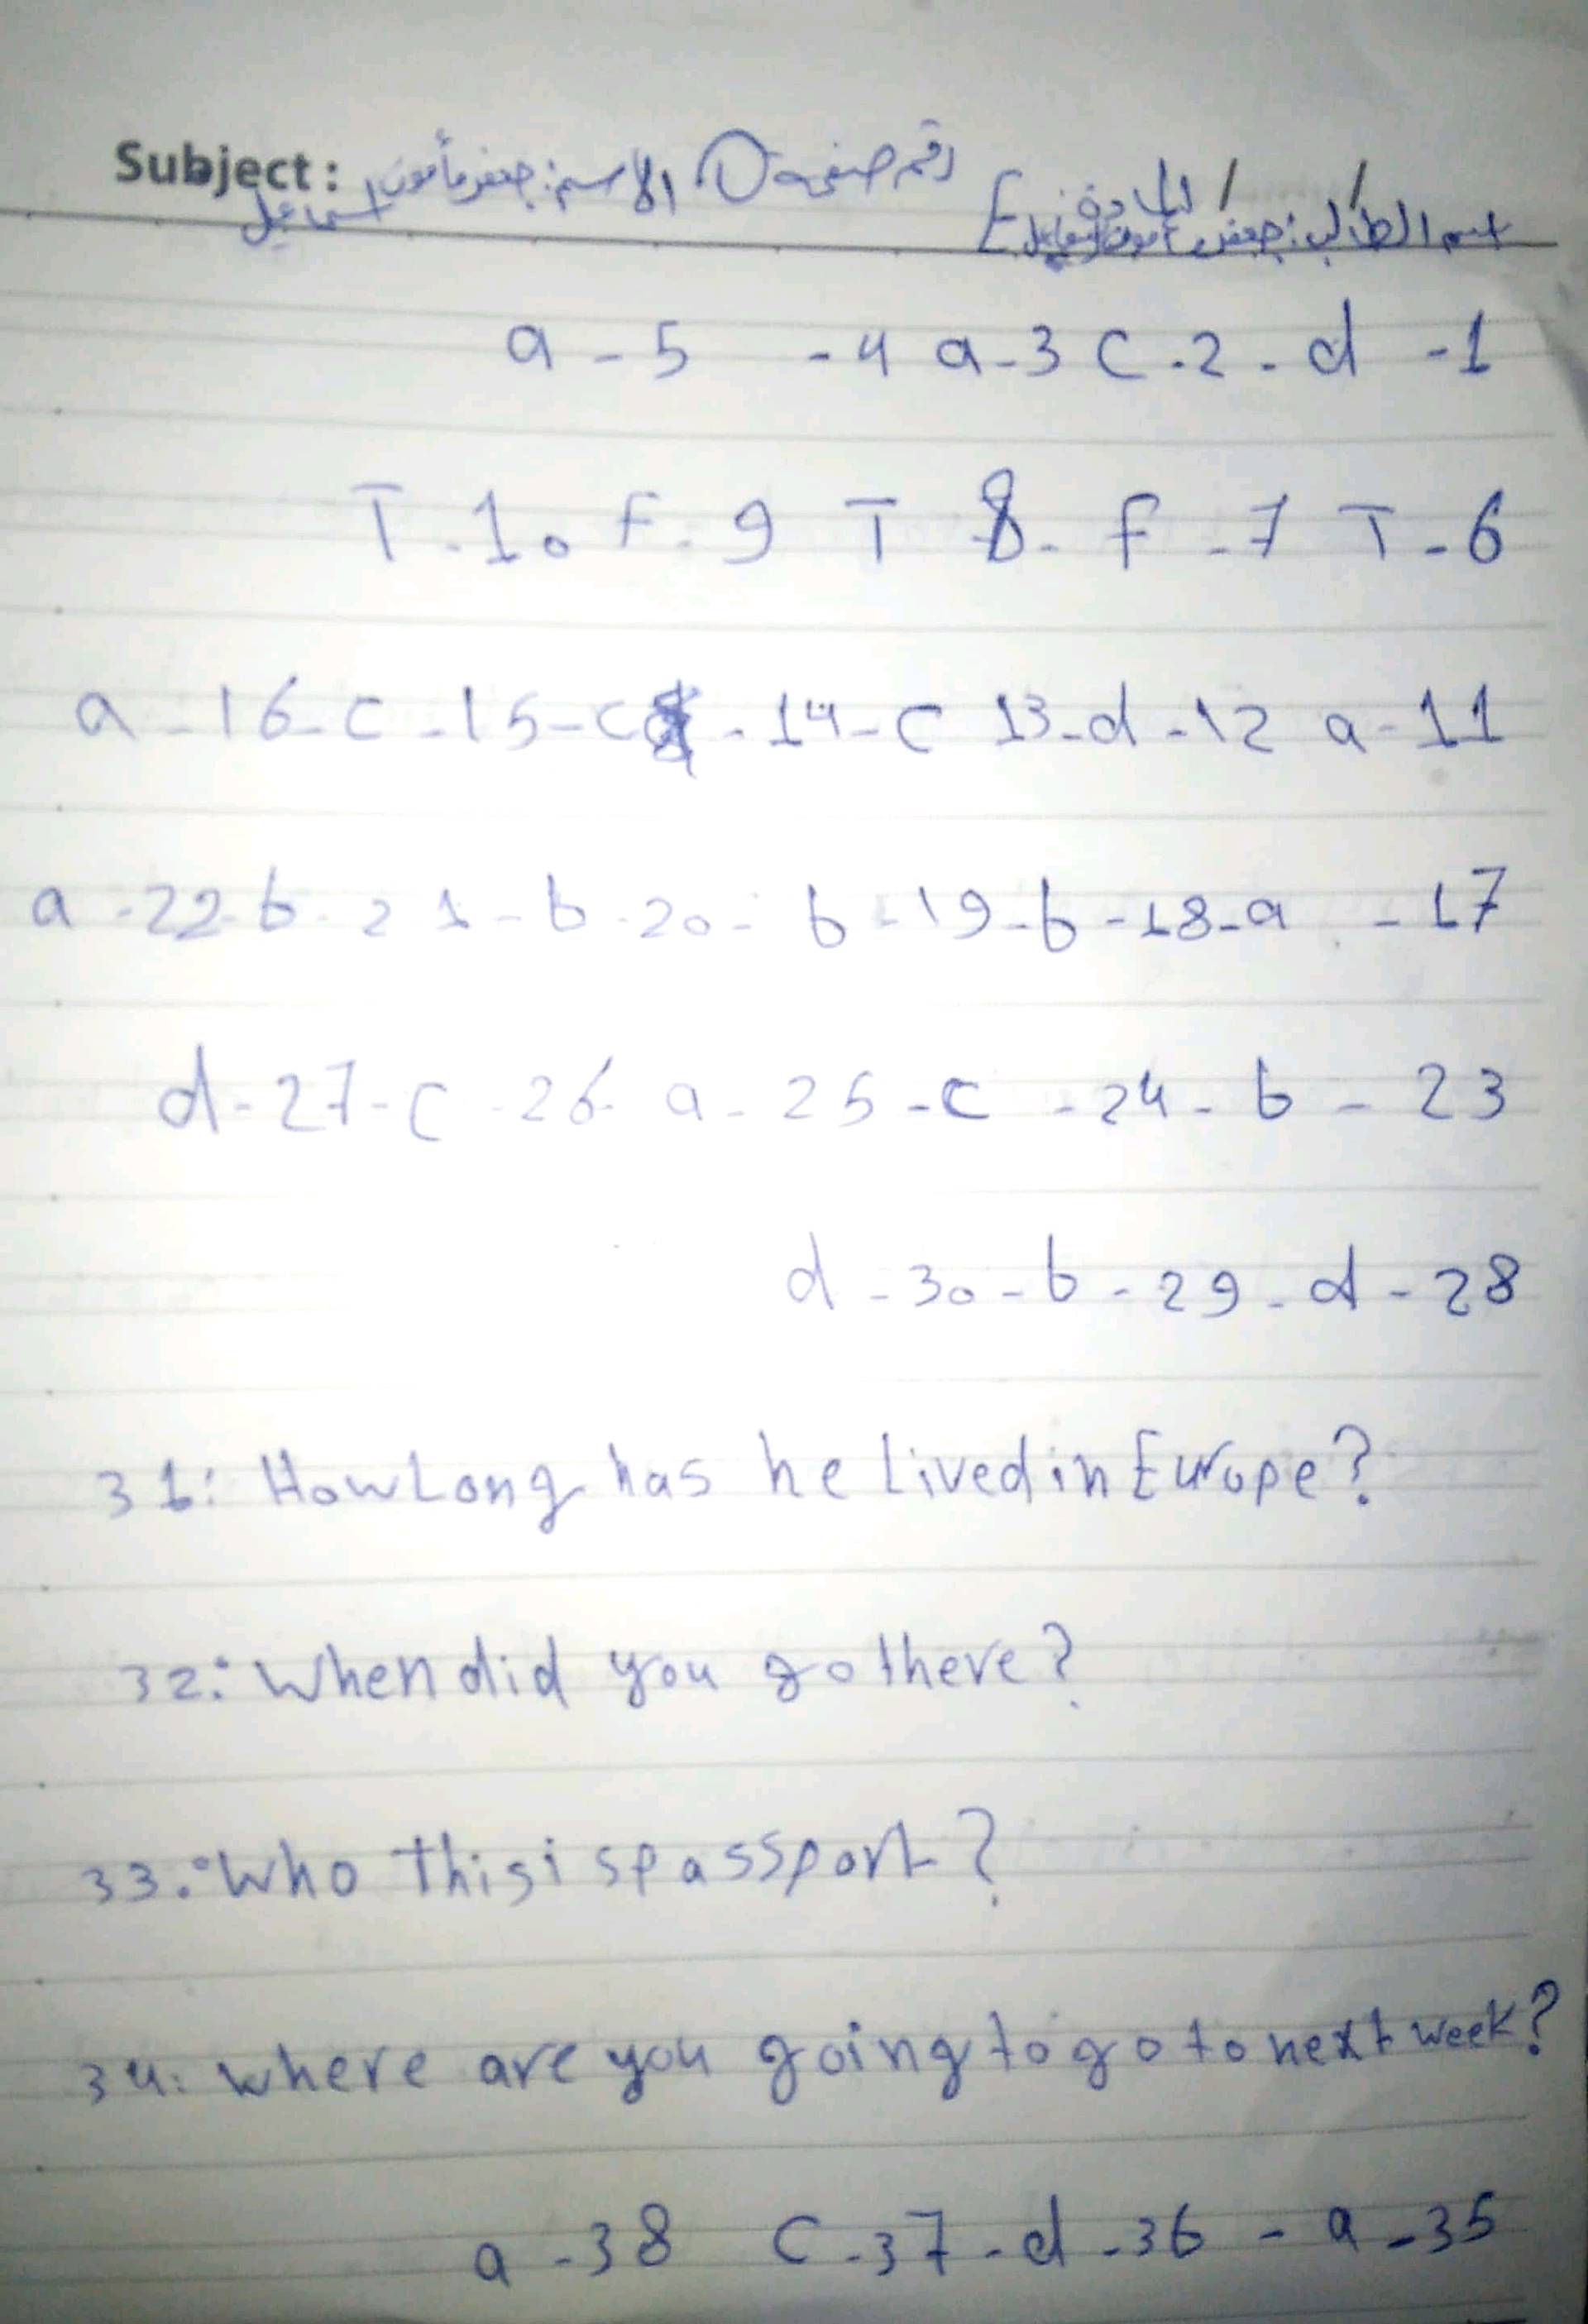 Subject: الاسم: جعفر مأمون اسماعيل رقم صفحة ① المادة E
اسم الطالب: جعفر مأمون اسماعيل
a - 5 - 4 a - 3 c - 2 - d - 1
T - 10 F - 9 T 8 - F - 7 T - 6
a - 16 - c - 15 - c - 14 - c 13 - d - 12 a - 11
a - 22 - b - 21 - b - 20 - b - 19 - b - 18 - a - 17
d - 27 - c - 26 - a - 25 - c - 24 - b - 23
d - 30 - b - 29 - d - 28
31: How Long has he Lived in Europe?
32: When did you go there?
33: Who this is passport?
34: where are you going to go to next week?
a - 38 c - 37 - d - 36 - a - 35